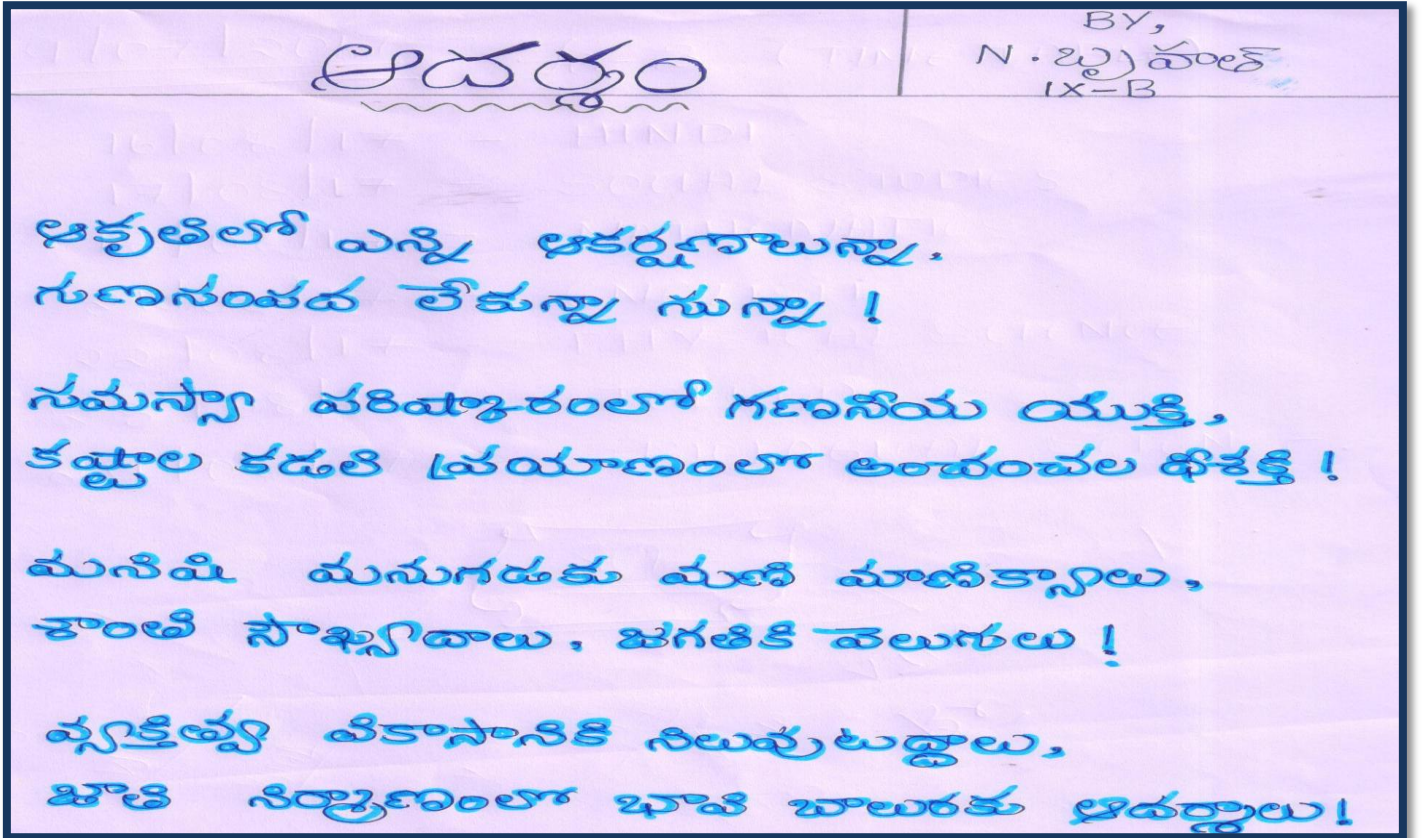 BY,
ఆదర్శం
N. బ్రహత్
IX-B
ఆకృతిలో ఎన్ని ఆకర్షణాలున్నా,
గుణసంపద లేకున్నా సున్నా !
సమస్యా పరిష్కారంలో గణనీయ యుక్తి,
కష్టాల కడలి ప్రయాణంలో అంచంచల ధీశక్తి !
మనిషి మనుగడకు మణి మాణిక్యాలు,
శాంతి సౌఖ్యాదాలు, జగతికి వెలుగులు !
వ్యక్తిత్వ వికాసానికి నిలువుటద్దాలు,
జాతి నిర్మాణంలో భావి బాలురకు ఆదర్శాలు !